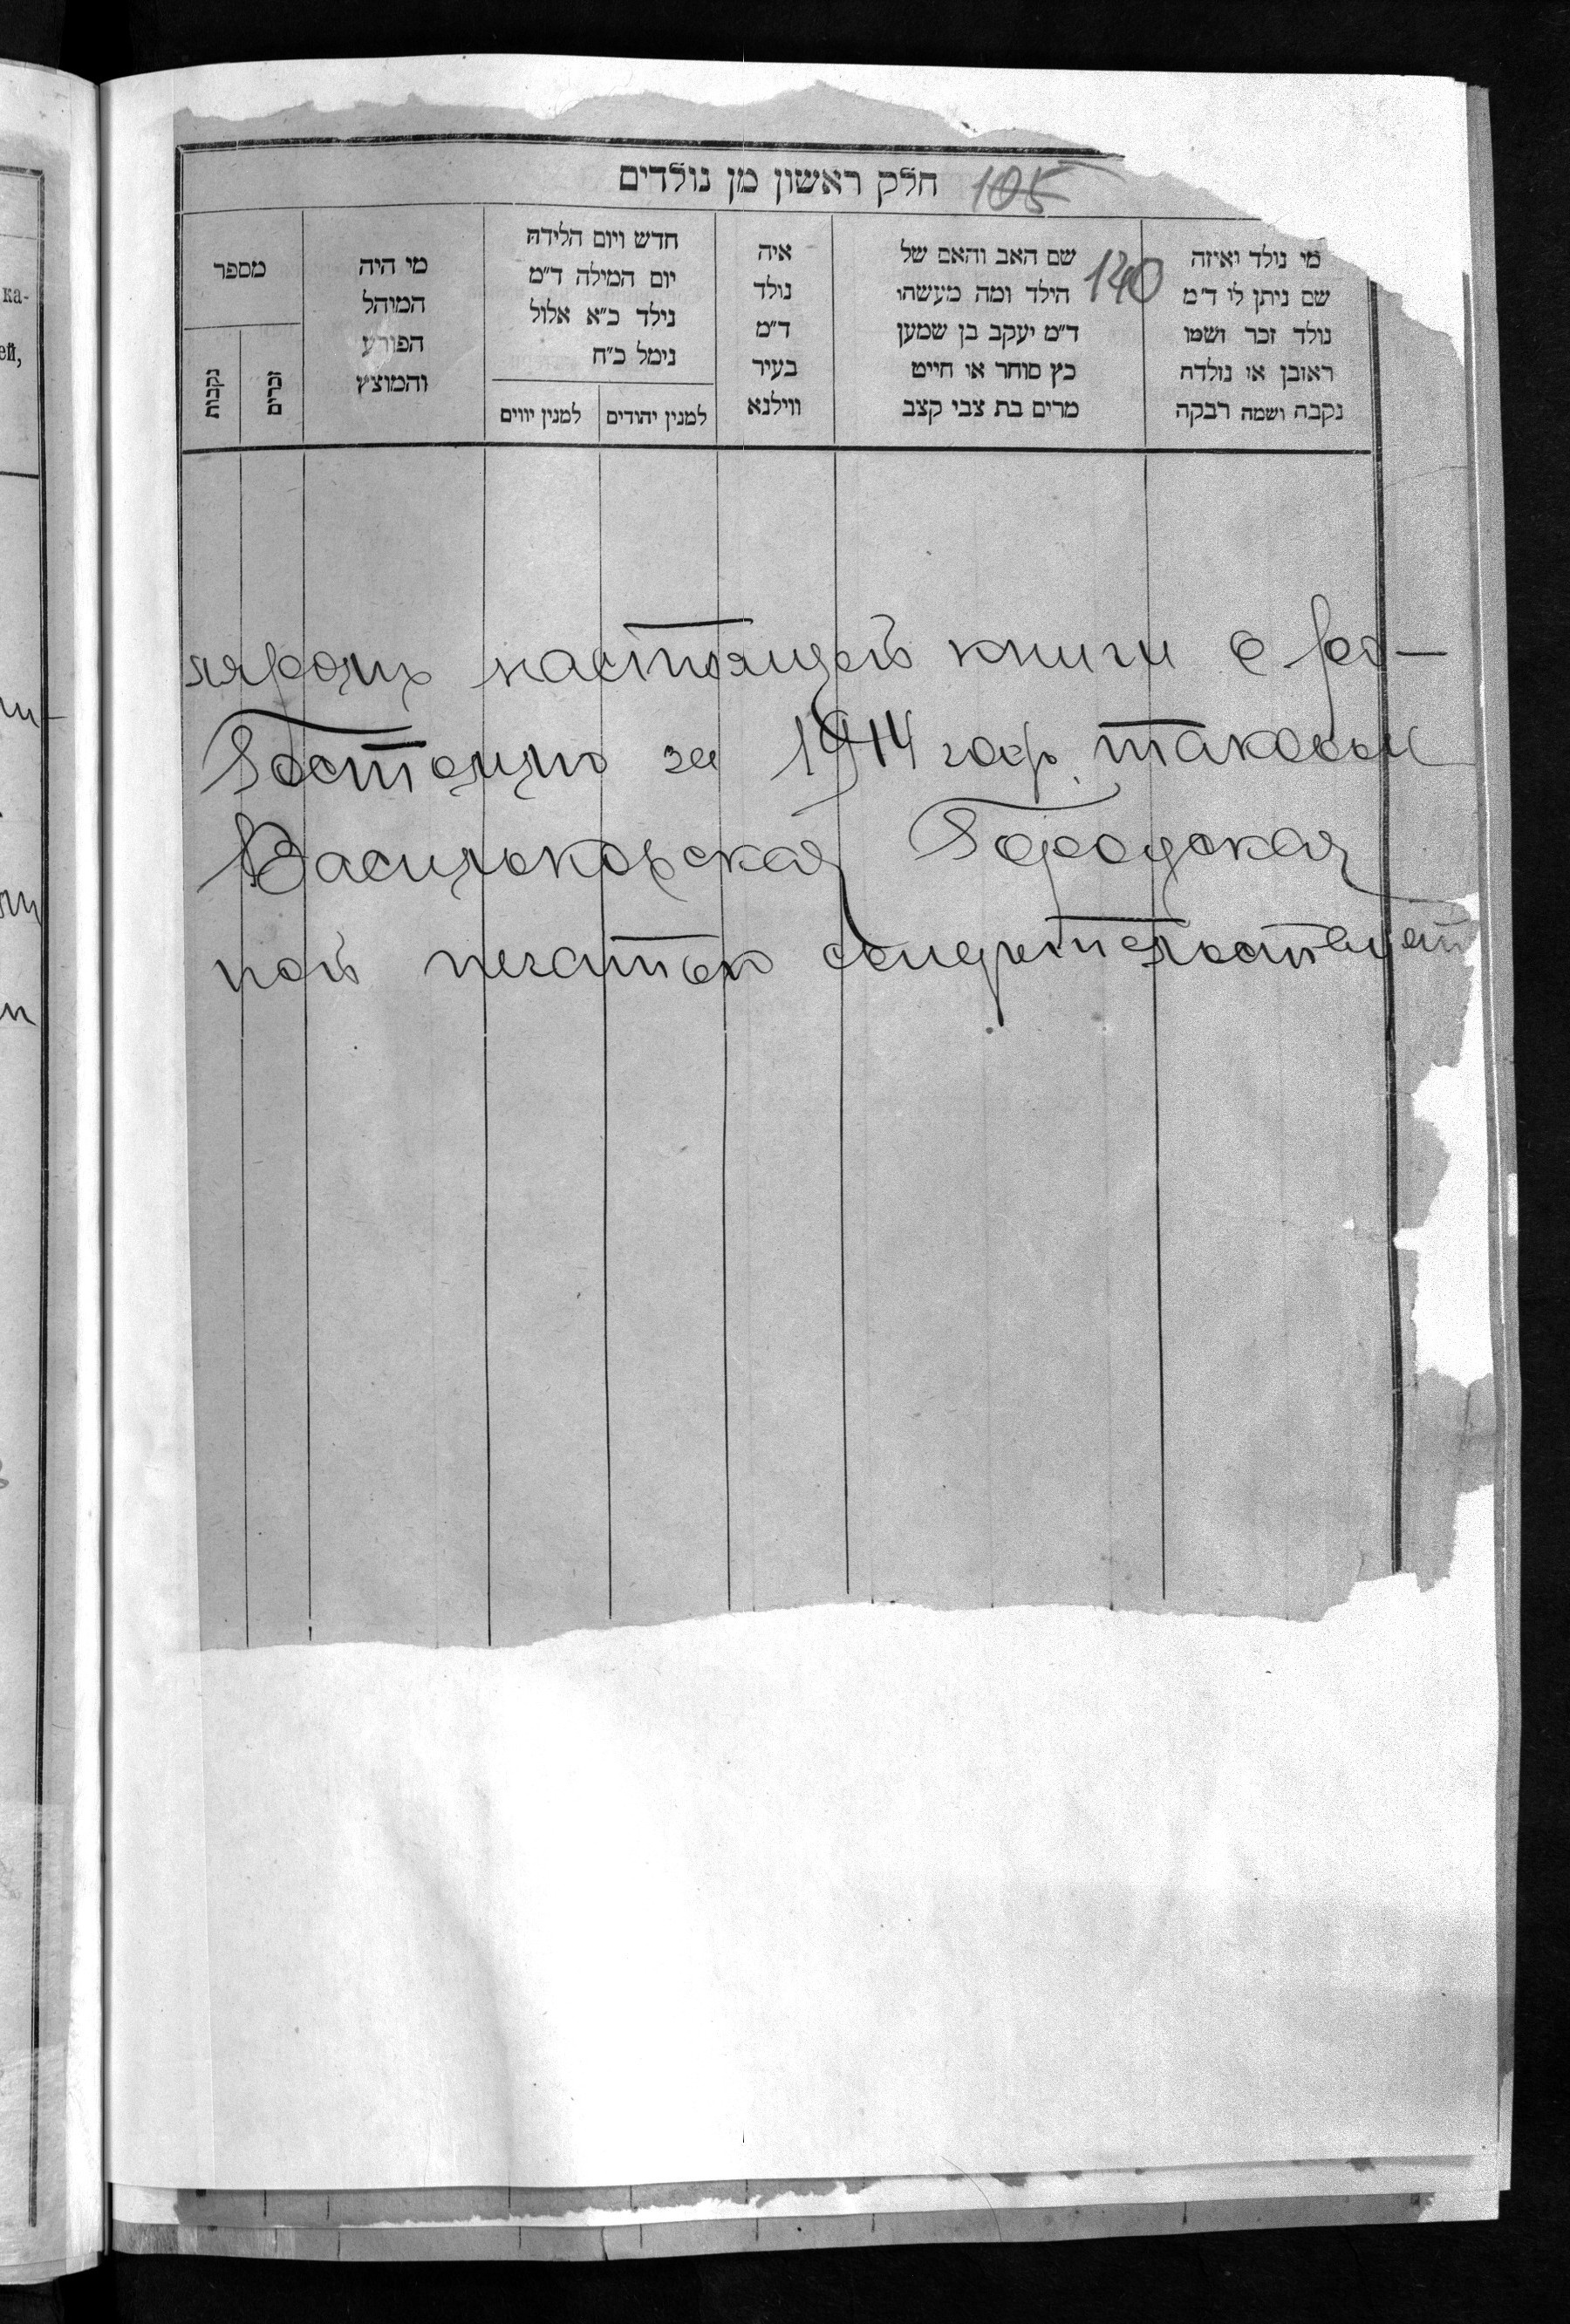 חלק ראשון מן נולדים 105
140
מי נולד ואיזה
שם ניתן לו ד"מ
נולד זכר ושמו
ראובן או נולדה
נקבה ושמה רבקה
שם האב והאם של
הילד ומה מעשהו
ד"מ יעקב בן שמעון
כץ סוחר או חייט
מרים בת צבי קצב
איה
נולד
ד"מ
בעיר
ווילנא
חדש ויום הלידה
יום המילה ד"מ
נילד כ"א אלול
נימל כ"ח
למנין יהודים
למנין יווים
מי היה
המוהל
הפורע
והמוצץ
מספר
זכרים
נקבות
настоящей книги о
за 1914 годъ таковой
Васильковская Городская
ной печатью свидѣтельствуетъ
ка-
ей,